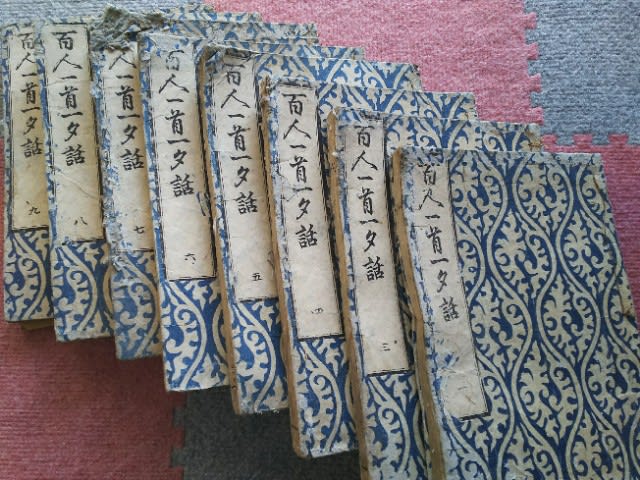 百人一首一夕話
百人一首一夕話
三
百人一首一夕話
四
百人一首一夕話
五
百人一首一夕話
六
人一首一夕話
七
百人一首一夕話
八
百人一首一夕話
九